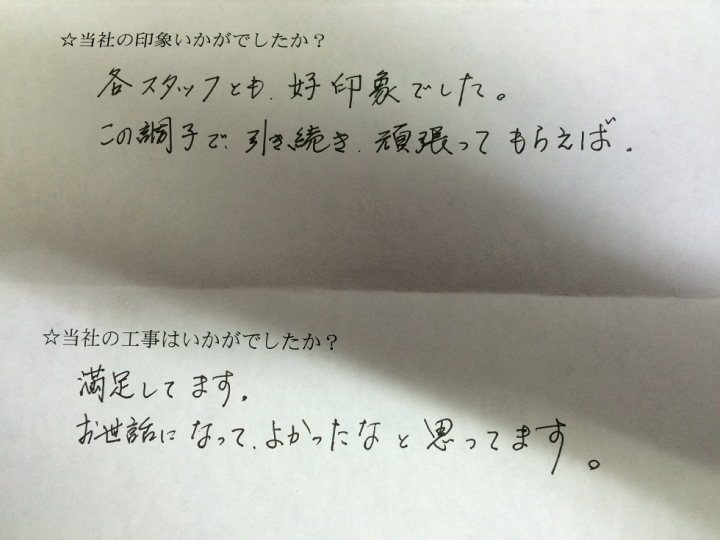 ☆当社の印象いかがでしたか？
各スタッフとも、好印象でした。
この調子で、引き続き、頑張ってもらえば。
☆当社の工事はいかがでしたか？
満足してます。
お世話になって、よかったなと思ってます。